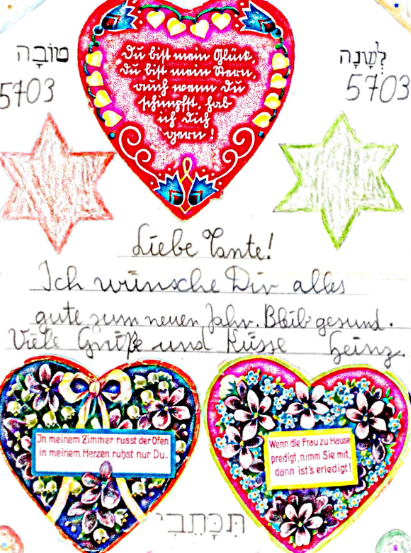 לְשָׁנָה טוֹבָה
5703 5703
Du bist mein Glück,
du bist mein Stern,
auch wenn du
schimpfst, hab
ich dich
gern!
Liebe Tante!
Ich wünsche Dir alles
gute zum neuen Jahr. Bleib gesund.
Viele Grüße und Küsse Heinz.
In meinem Zimmer russt der Ofen
in meinem Herzen ruhst nur Du.
Wenn die Frau zu Hause
predigt, nimm Sie mit,
dann ist's erledigt!
תִּכָּתֵבִי